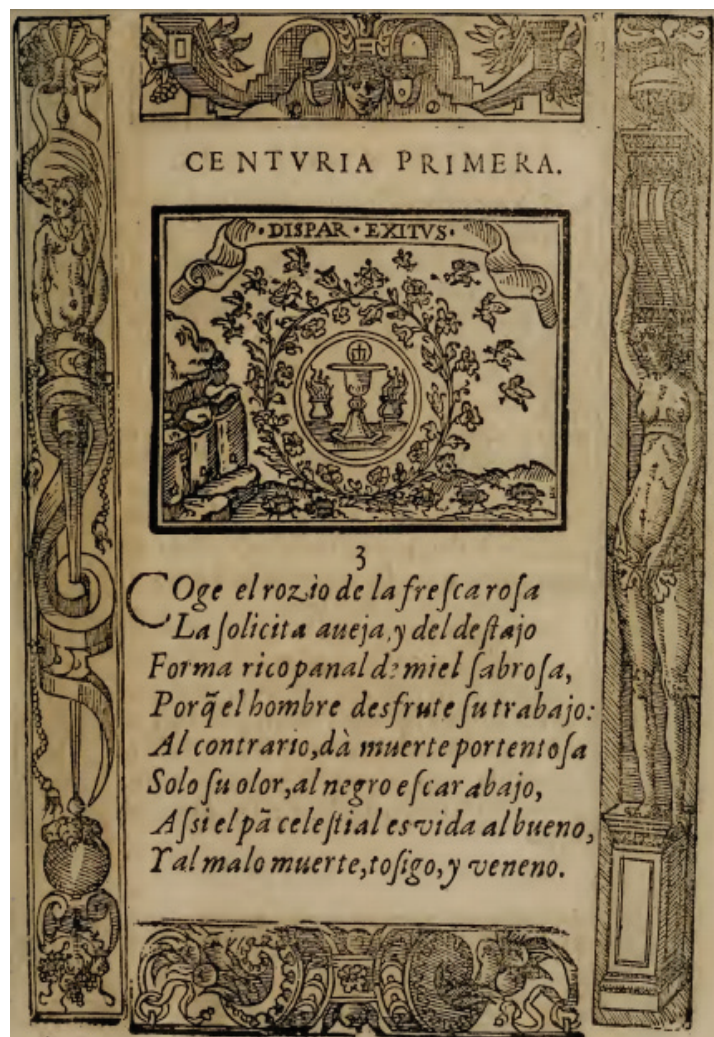 CENTVRIA PRIMERA.
·DISPAR·EXITVS·
3
COge el rozio de la freſca roſa
La ſolicita aueja, y del deſtajo
Forma rico panal de miel ſabroſa,
Porq̃ el hombre desfrute ſu trabajo:
Al contrario, dà muerte portentoſa
Solo ſu olor, al negro eſcarabajo,
Aſsi el pã celeſtial es vida al bueno,
Y al malo muerte, toſigo, y veneno.